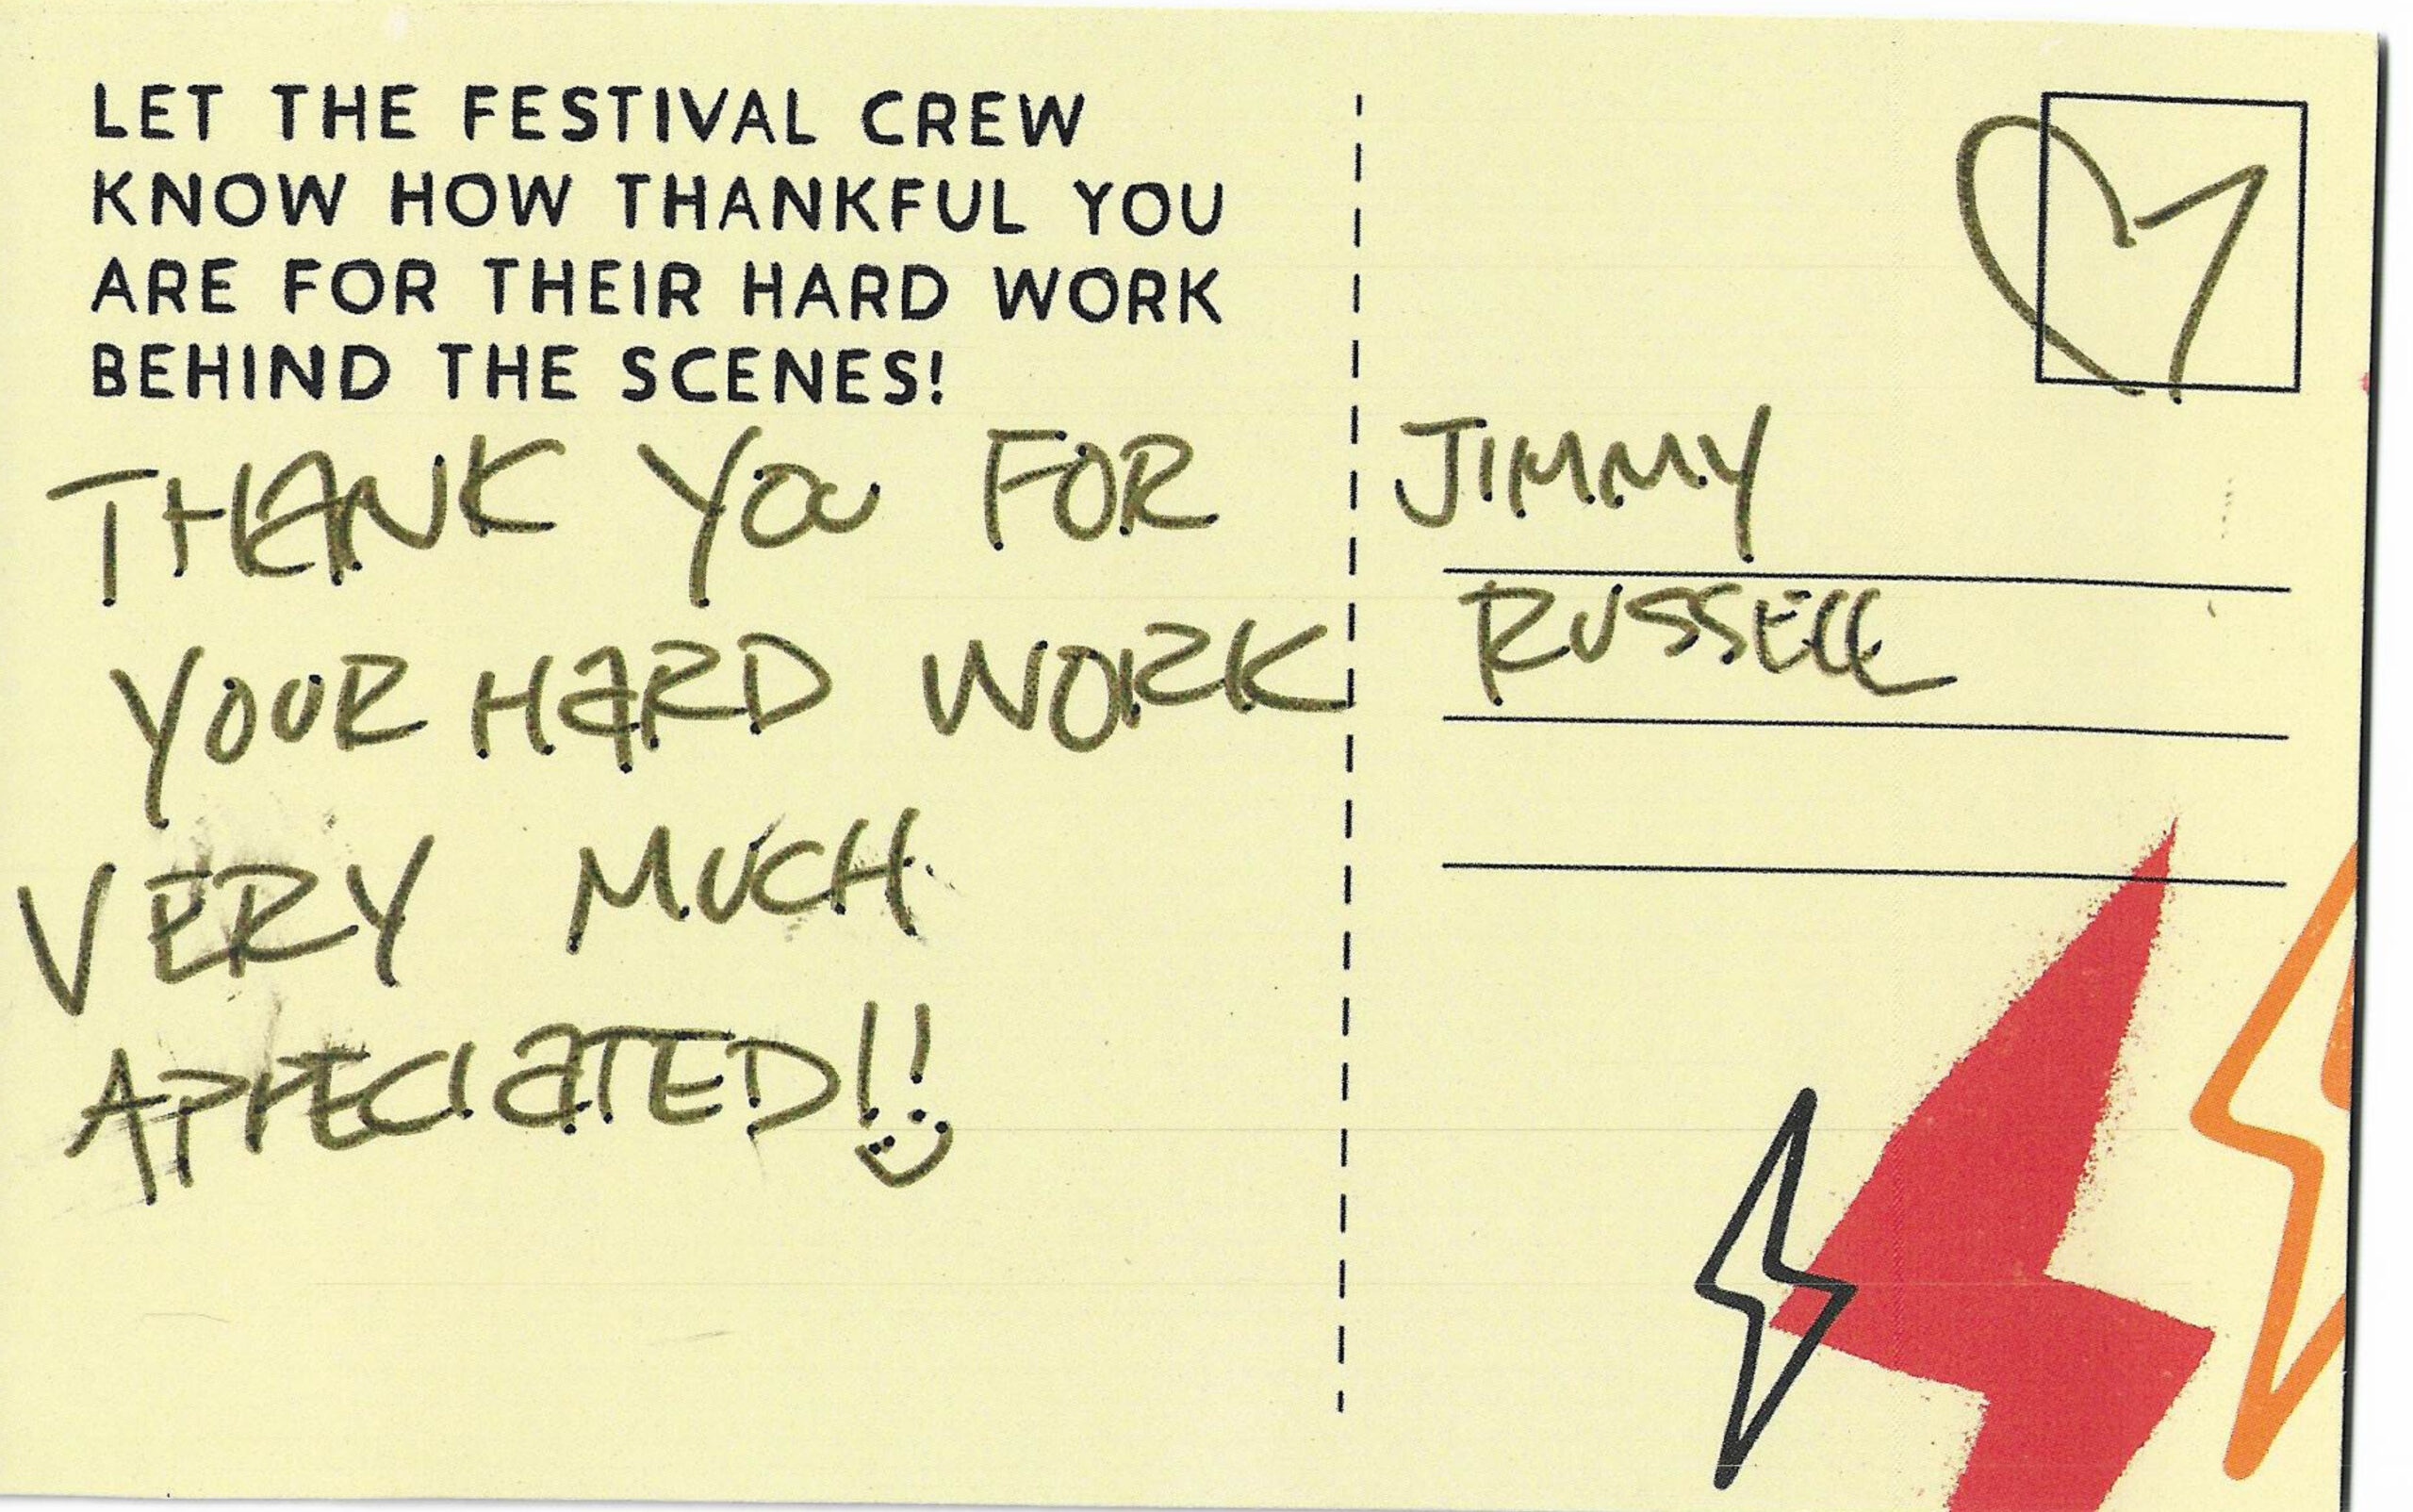 LET THE FESTIVAL CREW
KNOW HOW THANKFUL YOU
ARE FOR THEIR HARD WORK
BEHIND THE SCENES!
THANK YOU FOR
YOUR HARD WORK
VERY MUCH
APPECIATED!!
JIMMY
RUSSELL